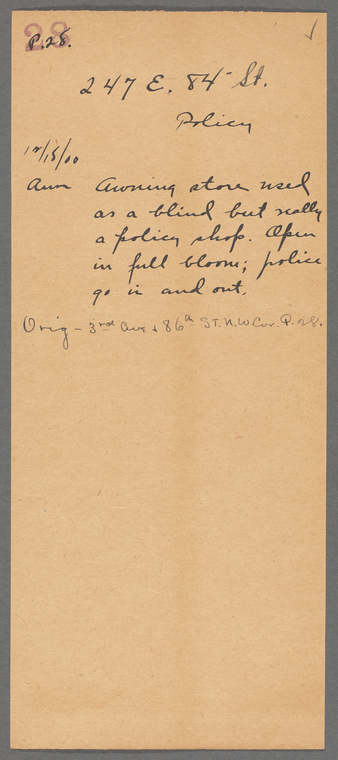 28
P.28.
247 E. 84 St.
Policy
12/15/00
Awning store used
as a blind but really
a policy shop. Open
in full bloom; police
go in and out.
Orig - 3rd Ave & 86th ST. N.W Cor. P.28.